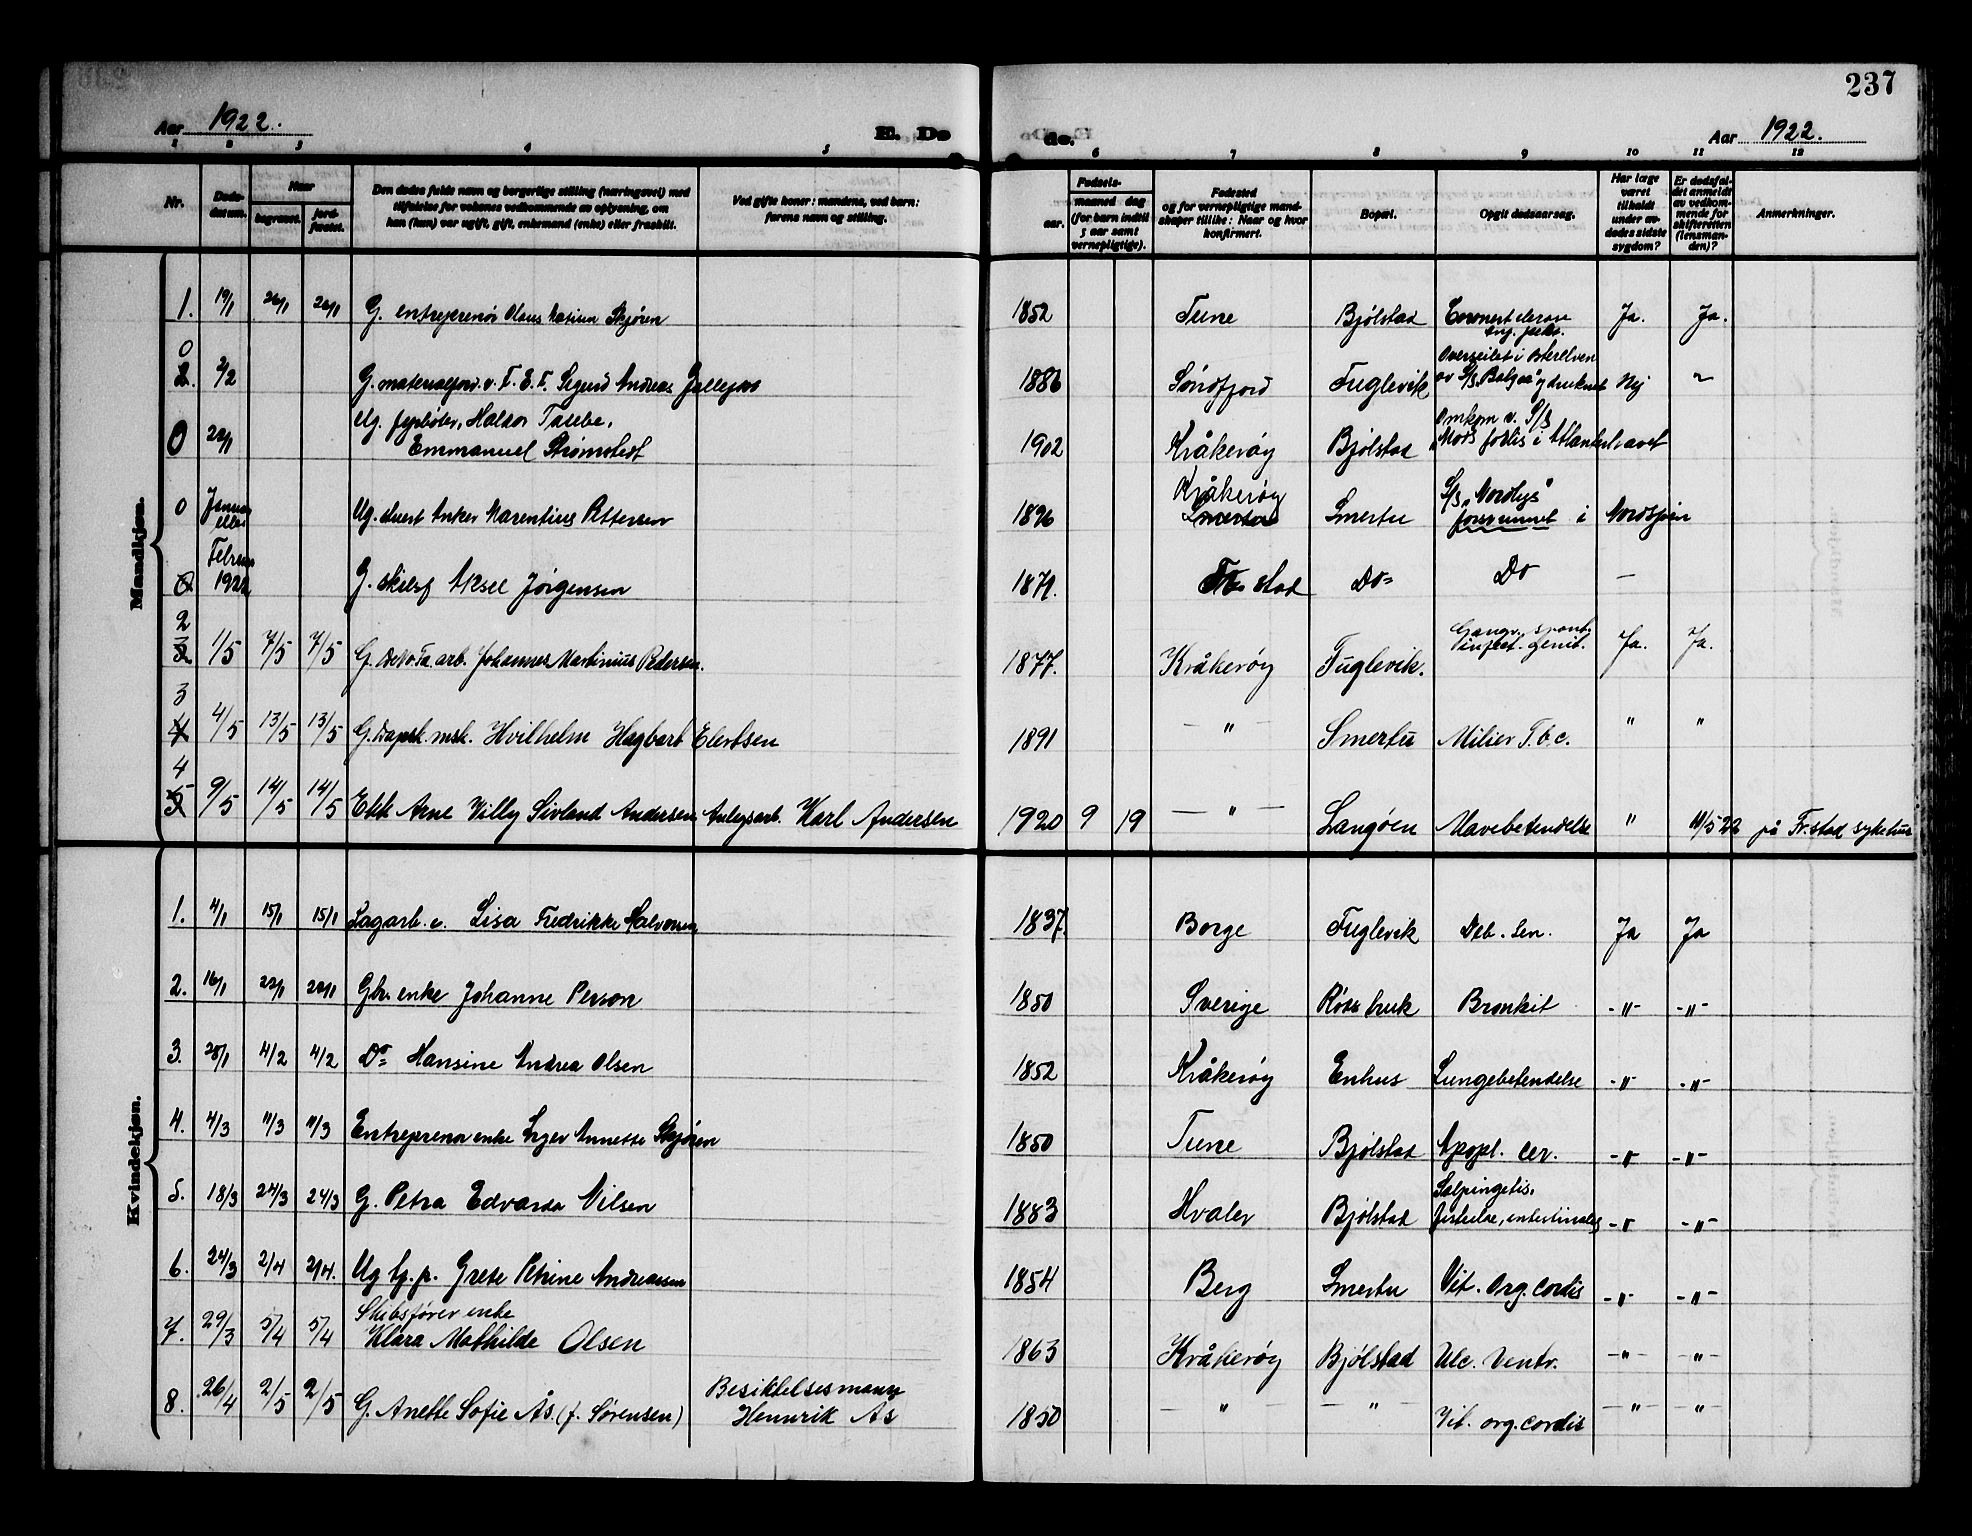 237
Aar 1922.
E. Dø
de.
Aar 1922.
1 2 3 4 5 6 7 8 9 10 11 12
Nr.
Døds-
datum.
Naar
begravet.
jord-
fæstet.
Den dødes fulde navn og borgerlige stilling (næringsvei) med
tilføielse for voksnes vedkommende av oplysning, om
han (hun) var ugift, gift, enkemand (enke) eller fraskilt.
Ved gifte koner: mandens, ved barn:
farens navn og stilling.
Fødsels-
aar.
maaned dag
(for barn indtil
5 aar samt
vernepligtige).
Fødested
og for vernepligtige mand-
skaper tillike: Naar og hvor
konfirmert.
Bopæl.
Opgit dødsaarsag.
Har læge
været
tilkaldt
under av-
dødes sidste
sygdom?
Er dødsfal-
det anmeldt
av vedkom-
mende for
skifteretten
(lensman-
den)?
Anmerkninger.
Mandkjøn.
1. 19/1 26/1 26/1 G. entreprenør Olaus Skjøren 1852 Tune Bjølstad Ja. Ja.
0 2. 2/2 G. materialforv. v. F. E. F. Sigurd Andreas 1886 Søndfjord Fuglevik Nej
0 22/1 Ug. fyrbøter, Haldor
Emmanuel Strømstedt 1902 Kråkerøy Bjølstad Omkom v. S/S "Mod's" forlis i Atlanterhavet
0 Januar
eller
Februar
1922
Ug. stuert Anker Marentius Pettersen 1896 Kråkerøy Smertu S/S "Nordlys"
forsvunnet i Nordsjøen
0 G. Aksel Jørgensen 1871. Fr. stad Do= Do —
2 3 1/5 7/5 7/5 G. arb. Johannes Martinius Pedersen. 1877. Kråkerøy Fuglevik. Gangr. spont. Ja. Ja.
3 4 4/5 13/5 13/5 G. Dampsk. msk. Hvilhelm Hagbart Elertsen 1891 — " — Smertu Milier T.b.c. " "
4 5 9/5 14/5 14/5 Ekt. Arne Villy Sivland Andersen Anlegsarb. Karl Andersen 1920 9 19 — " — Langøen Mavebetendelse " 11/5 22 på Fr.stad sykehus
Kvindekjøn.
1. 4/1 15/1 15/1 Sagarb. e. Lisa Fredrikke Halvorsen 1837. Borge Fuglevik Deb. sen. Ja Ja
2. 16/1 22/1 22/1 Gbr. enke Johanne Person 1850 Sverige Røds bruk Bronkit -"- -"-
3. 28/1 4/2 4/2 Do= Hansine Andrea Olsen 1852 Kråkerøy Enhus Lungebetendelse -"- -"-
4. 4/3 11/3 11/3 Entreprenør enke Inger Annette Skjøren 1850 Tune Bjølstad Apopl. cer. -"- -"-
5. 18/3 24/3 24/3 G. Petra Edvarda Nilsen 1883 Hvaler Bjølstad Salpingetis, -"- -"-
6. 24/3 2/4 2/4. Ug tj.p. Grete Petrine Andreassen 1854 Berg Smertu Vit. Org. cordis -"- -"-
7. 29/3 5/4 5/4 Skibsfører enke
Klara Mathilde Olsen 1863 Kråkerøy Bjølstad Ulc. Ventr. -"- -"-
8. 26/4 2/5 2/5 G. Anette Sofie Ås (f. Sørensen) Besiktelsesmann
Hennrik Ås 1850 — " — — " — Vit. org. cordis — " — — " —